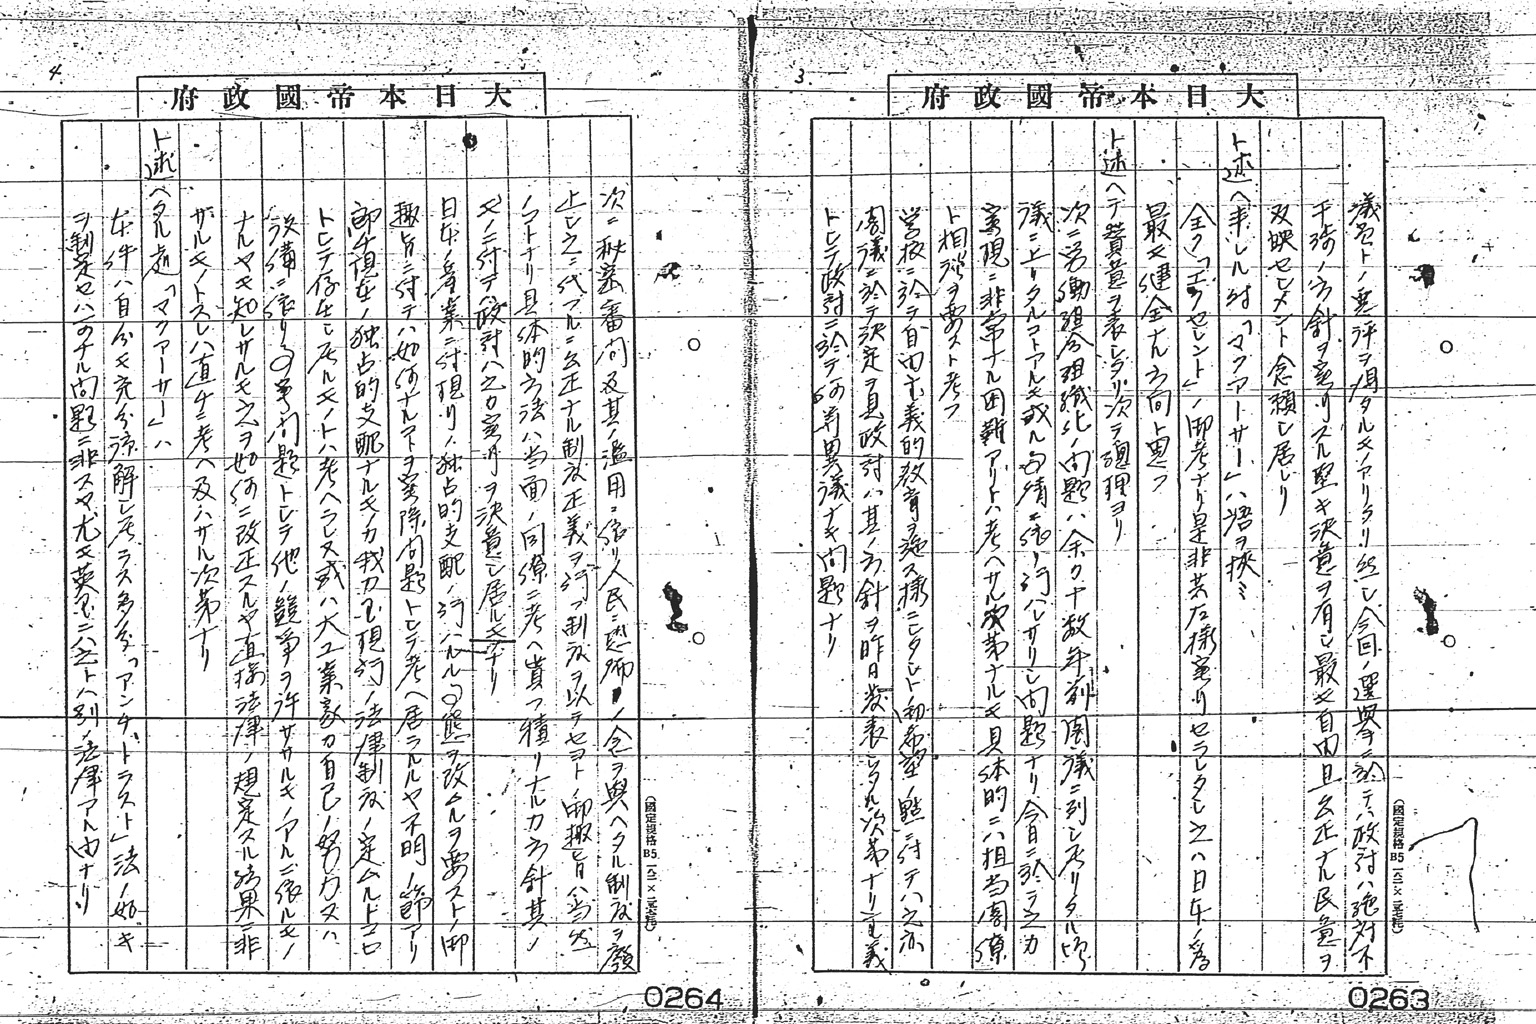 3.
大日本帝國政府
議会トノ悪評ヲ得タルモノアリタリ然シ今回ノ選挙ニ於テハ政府ハ絶対不
干渉ノ方針ヲ宣リスル堅キ決意ヲ有シ最モ自由且公正ナル民意ヲ
反映セシメント念願シ居レリ
ト述ヘ来レル時「マクアーサー」ハ語ヲ挟ミ
全ク「エクセレント」ノ御考ナリ是非共左様実行セラレタシ之ハ日本ノ為
最モ健全ナル方向ト思フ
ト述ヘテ賛意ヲ表シタリ次テ総理ヨリ
次ニ労働組合組織化ノ問題ハ余カ十数年前閣議ニ列シ居リタル時
議ニ上リタルコトアルモ或ル事情ニ依リ行ハレサリシ問題ナリ今日ニ於テ之カ
実現ニ非常ナル困難アリトハ考ヘサル次第ナルモ具体的ニハ担当閣僚
ト相談ヲ要スト考フ
学校ニ於テ自由主義的教育ヲ施ス様ニシタシトノ御希望ノ点ニ付テハ之亦
閣議ニ於テ決定ヲ見政府ハ其ノ方針ヲ昨日発表シタル次第ナリ主義
トシテ政府ニ於テ何等異議ナキ問題ナリ
(國定規格B5 一八二×二五七粍)
0263
4.
大日本帝國政府
次ニ秘密審問及其ノ濫用ニ依リ人民ニ恐怖ノ念ヲ與ヘタル制度ヲ廃
止シ之ニ代フルニ公正ナル制度正義ヲ行フ制度ヲ以テセヨトノ御趣旨ハ当然
ノコトナリ具体的方法ハ当面ノ閣僚ニ考ヘ貰フ積リナルカ方針其ノ
モノニ付テハ政府ハ之カ実行ヲ決意シ居ルモナリ
日本ノ産業ニ付現行ノ独占的支配ノ行ハルル事態ヲ改ムルヲ要ストノ御
趣旨ニ付テハ如何ナルコトヲ実際問題トシテ考ヘ居ラルルヤ不明ノ節アリ
即チ現在ノ独占的支配ナルモノカ我カ国現行ノ法律制度ノ定ムルトコロ
トシテ存在シ居ルモノトハ考ヘラレス或ハ大工業家カ自己ノ努力又ハ
設備ニ依リ事実問題トシテ他ノ競争ヲ許ササルモノアルニ依ルモノ
ナルヤモ知レサルモ之ヲ如何ニ改正スルヤ直接法律ノ規定スル結果ニ非
サルモノトスレハ直チニ考ヘ及ハサル次第ナリ
ト述ヘタル処「マクアーサー」ハ
本件ハ自分モ充分諒解シ居ラス多分「アンチ、トラスト」法ノ如キ
ヲ制定セハ可ナル問題ニ非スヤ尤モ英国ニハ之トハ別ノ法律アル由ナリ
(國定規格B5 一八二×二五七粍)
0264